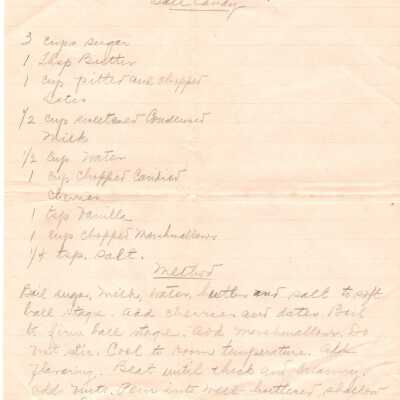 Candy
3 cups sugar
1 Tbsp Butter
1 cup pitted and chopped
Dates
1/2 cup sweetened Condensed
Milk
1/2 cup water
1 cup chopped Candied
Cherries
1 tsp Vanilla
1 cup chopped Marshmallows
1/4 tsp. salt.
Method
Boil sugar, milk, water, butter and salt to soft
ball stage. Add cherries and dates. Boil
to firm ball stage. Add marshmallows. Do
not stir. Cool to room temperature. Add
flavoring. Beat until thick and creamy.
add nuts. Pour into well-buttered shallow